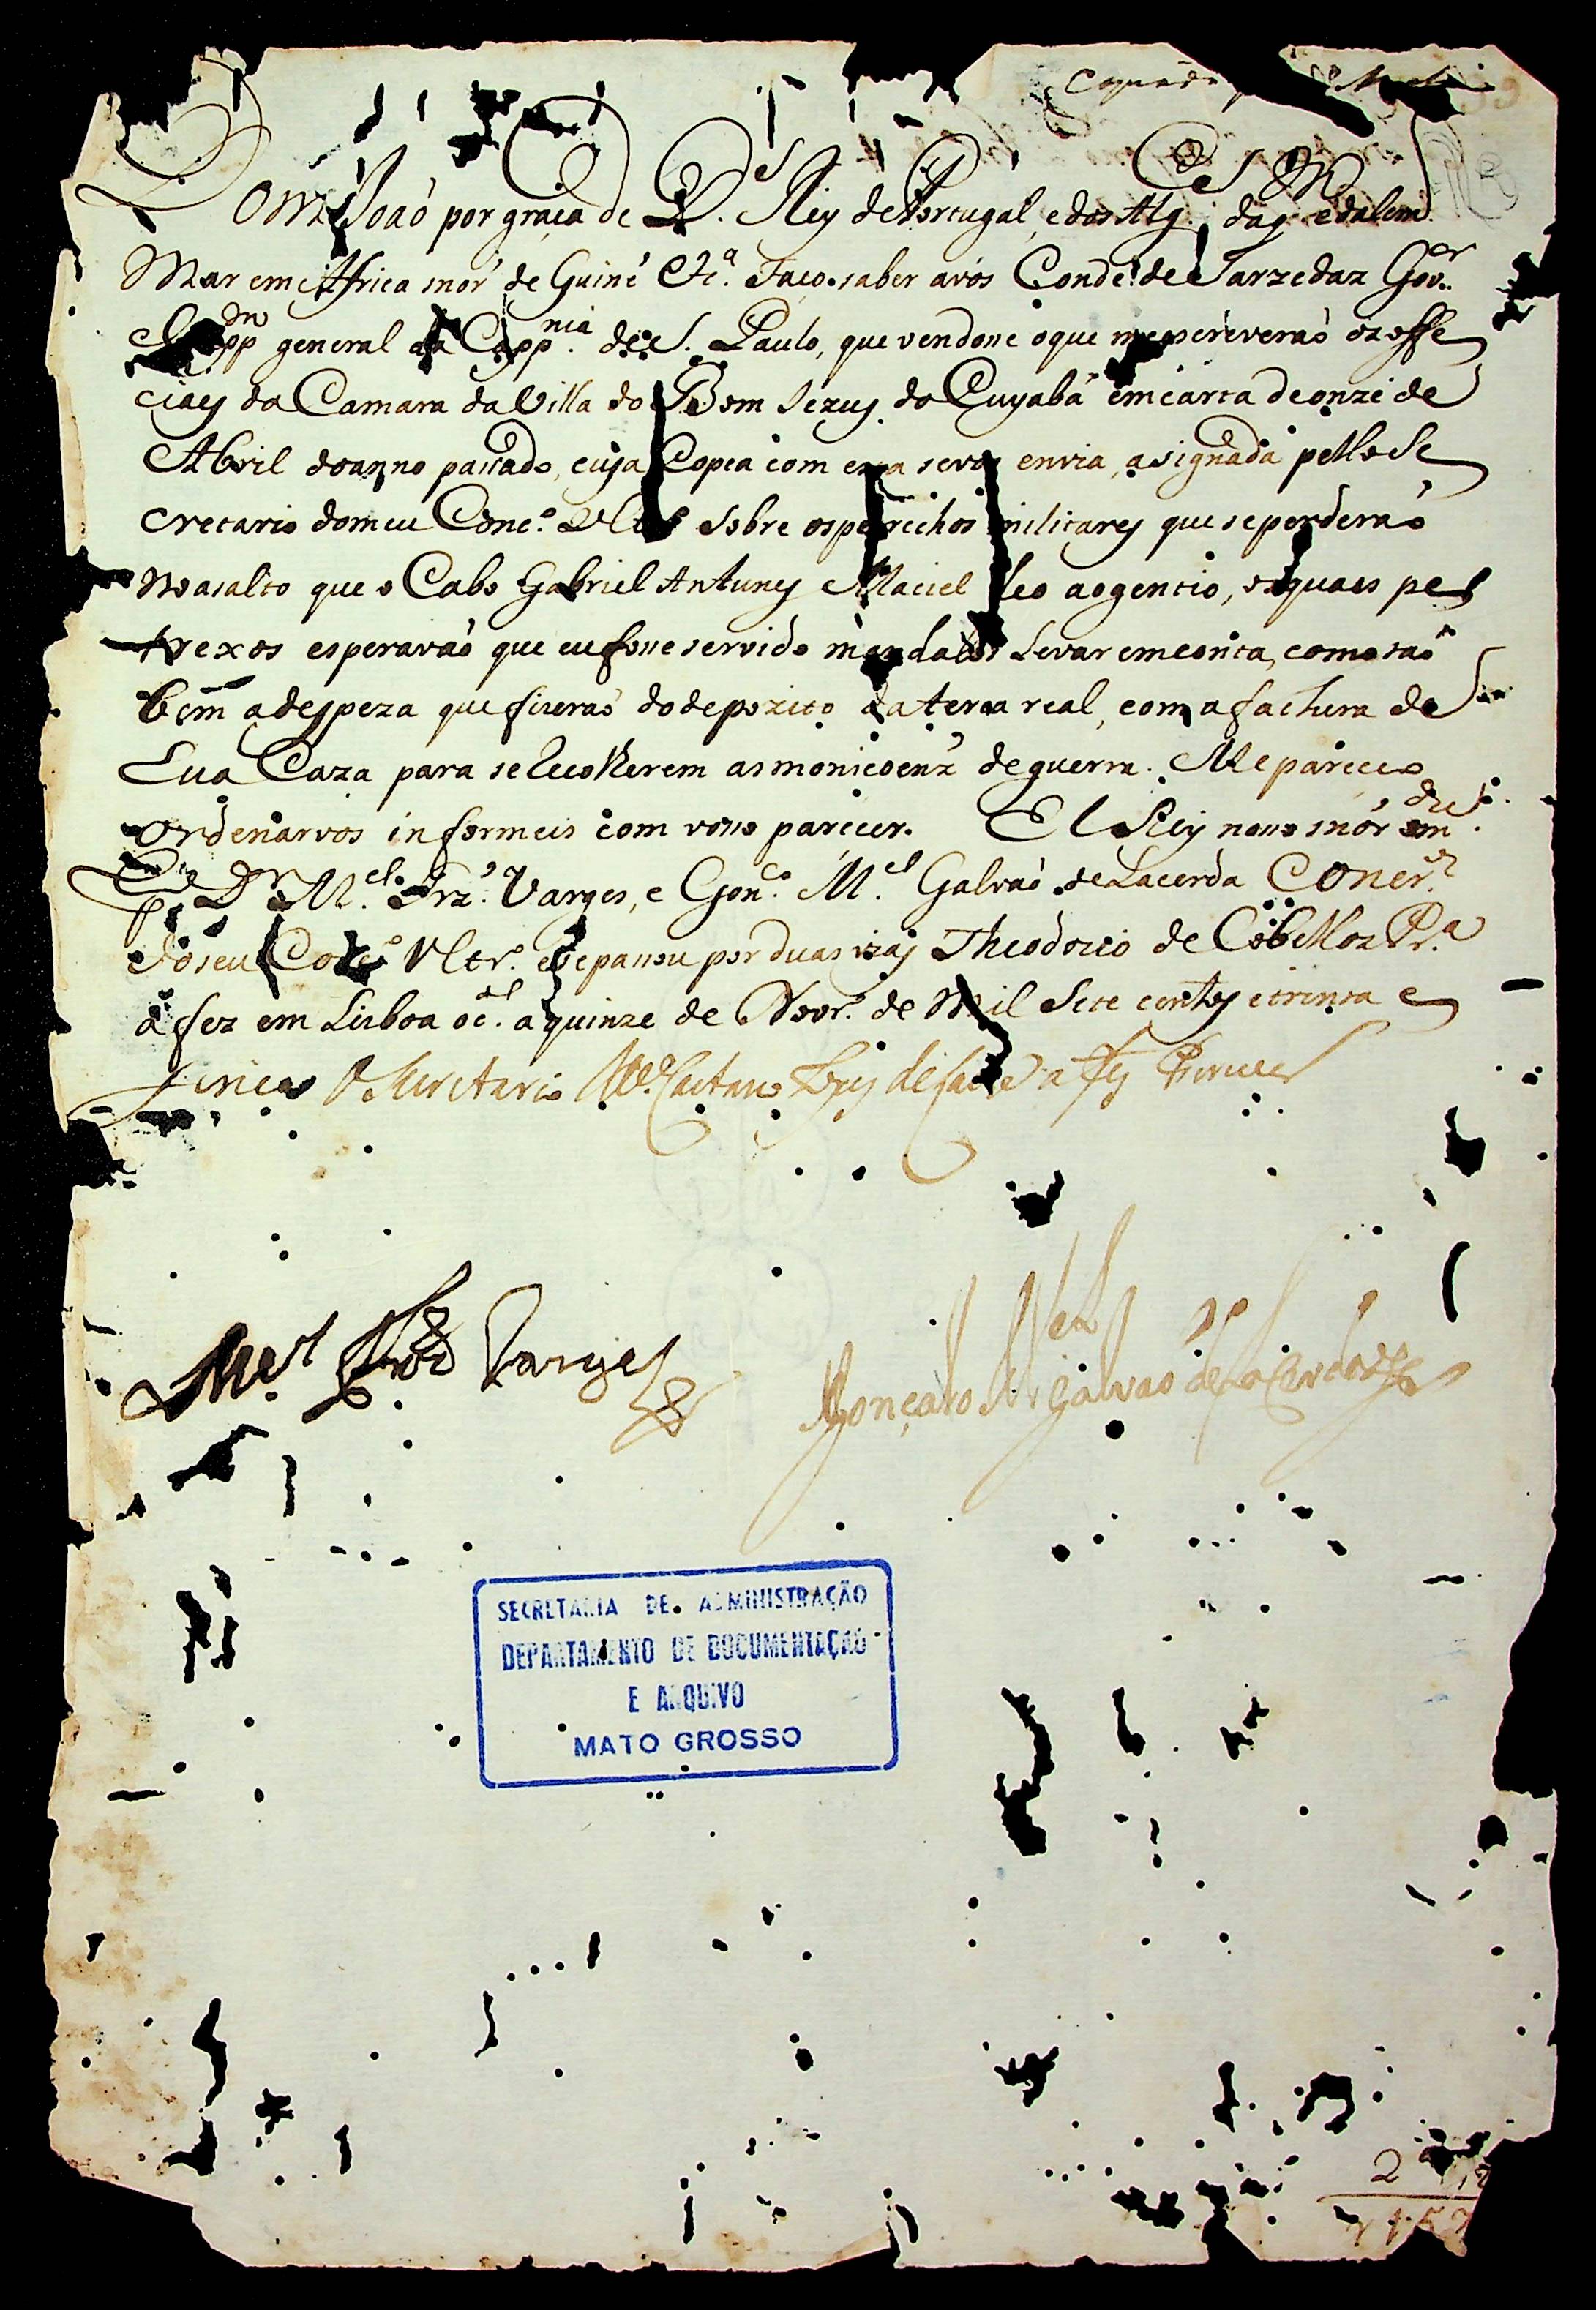 Dom Joaõ por graça de D.s Rey de Portugal, e dos Alg.es daq.m e dalem
Mar em Africa snõr de Guiné &c.a Faço saber avós Conde de Sarzedaz Gov.or
Capp.dn general da Capp.nia de S. Paulo, que vendose oque me escreveraõ os offe
ciaes da Camara da Villa do Bom Jezus do Cuyabá em carta de onze de
Abril do anno passado, cuja Copea com esta sevos envia, asignada pello Se
cretario do meu Conc.o Ultr.o sobre os petrechos militares que se perderaõ
no asalto que o Cabo Gabriel Antunes Maciel deo ao gentio, os quaes pe
trexos esperavaõ que eu fosse servido mandalos Levar em conta, como taõ
bem a despeza que fizeraõ do depozito da terça real, com a factura de
hua Caza para se recolherem as moniçoenz de guerra. Me pareceo
ordenarvos informeis com vosso parecer. El Rey nosso snõr o m.dou
p.los D.r M.el Frz.' Varges, e Gon.co M.el Galvaõ de Lacerda Coner.os
do seu Conc.o Ultr.o e se passou por duas vias Theodozio de Cobellos Pr.a
a fez em Lisboa oc.al a quinze de Novr.o de Mil Sete centos e trinta e
sinco O Secretario M.el Caetano Lopes de Lavre a fes escrever
M.el Frz Varges
Gonçalo M.el Galvaõ de Lacerda
SECRETARIA DE ADMINISTRAÇÃO
DEPARTAMENTO DE DOCUMENTAÇÃO
E ARQUIVO
MATO GROSSO